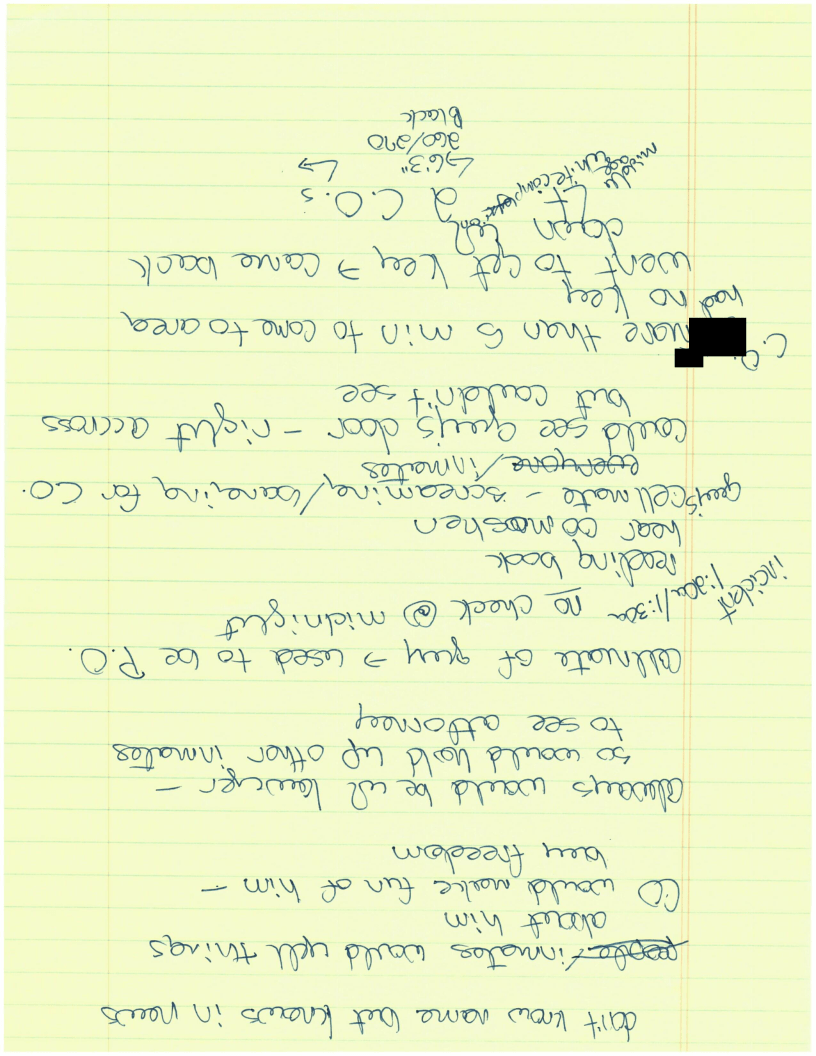 don't know name but knows in news
people/inmates would yell things
about him
CO would make fun of him –
buy freedom
always would be w/ lawyer –
so would hold up other inmates
to see attorney
cellmate of guy → used to be P.O.
incident
1:20a/1:30a
no check @ midnight
reading book
hear commotion
guy's cellmate – screaming/banging for CO.
everyone/inmates
could see guy's door – right accross
but couldn't see
C.O.
more than 5 min to come to area
had no key
went to get key → came back
open cell
Lt
2 C.O.s
middle age
white
→ 6'3"
260/270
Black